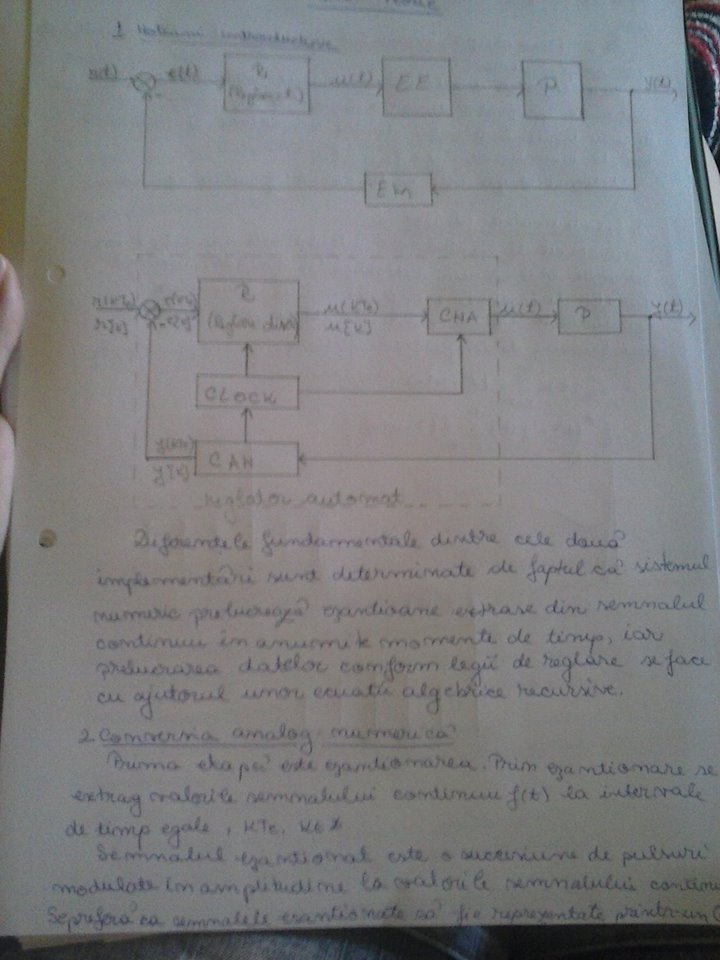 1 Notiuni introductive
r(t) e(t) R (Reglator) u(t) EE P y(t)
EM
r(kTe) r[k] R u(kTe) u[k] CNA u(t) P y(t)
CLOCK
y(kTe) y[k] CAN
reglator automat
Diferentele fundamentale dintre cele două
implementări sunt determinate de faptul că sistemul
numeric prelucrează esantioane extrase din semnalul
continuu în anumite momente de timp, iar
prelucrarea datelor conform legii de reglare se face
cu ajutorul unor ecuatii algebrice recursive.
2. Conversia analog numerică
Prima etapă este esantionarea. Prin esantionare se
extrag valorile semnalului continuu f(t) la intervale
de timp egale, kTe,
Semnalul esantionat este o succesiune de pulsuri
modulate în amplitudine la valorile semnalului continu
Se preferă ca semnalele esantionate să fie reprezentate printr-un